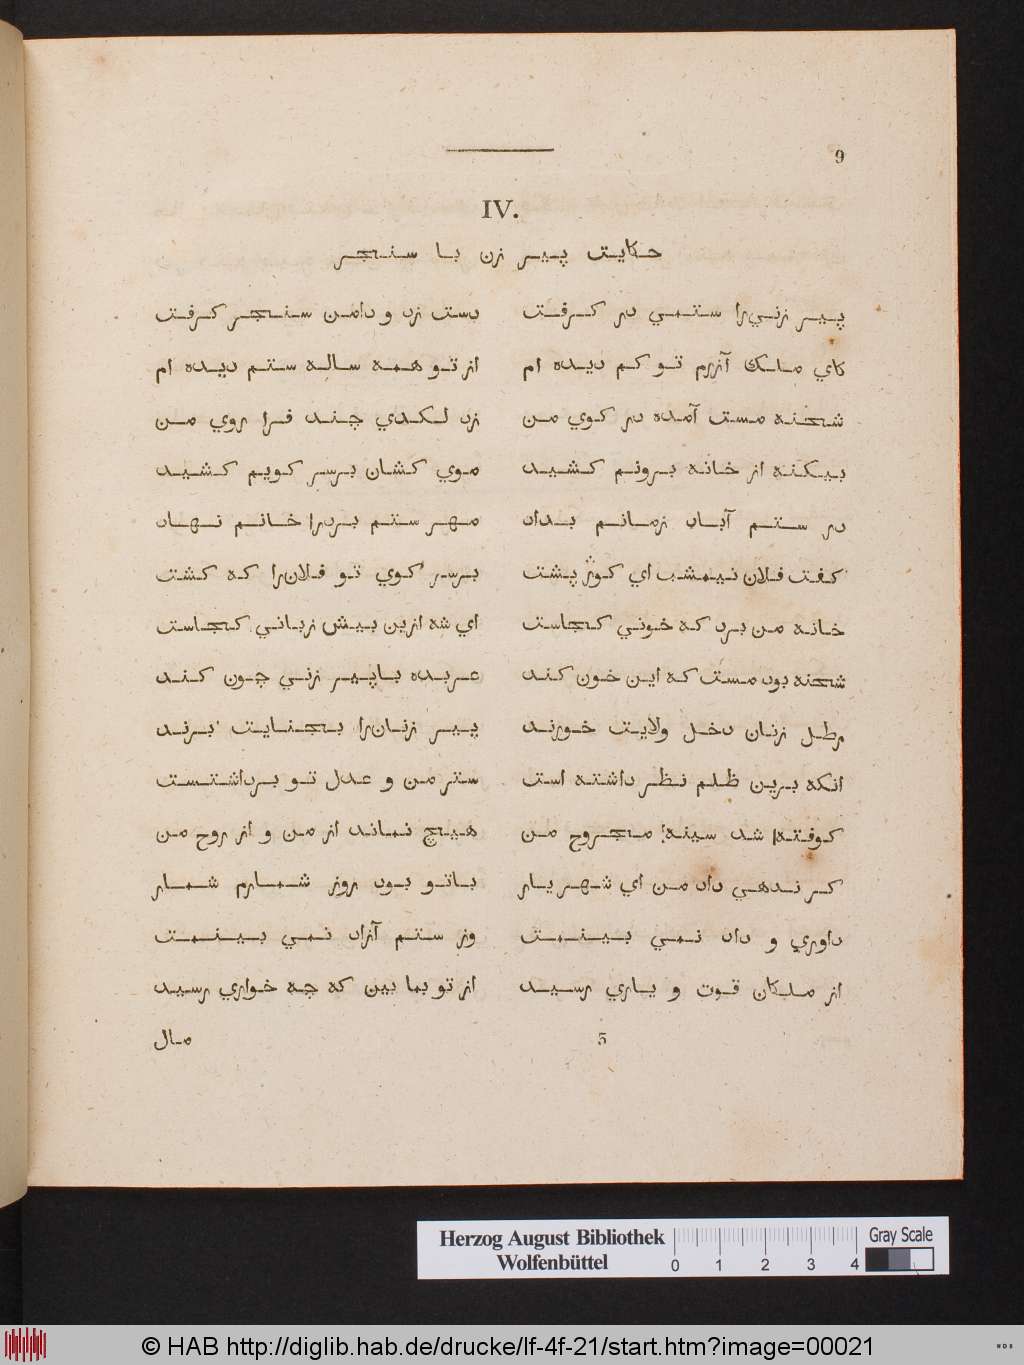 9
IV.
حكايت پير زن با سنجر
پير زني‌را ستمي در كرفت دست زد و دامن سنجر كرفت
كاي ملك آزرم تو كم ديده ام از تو همه ساله ستم ديده ام
شحنه مست آمده در كوي من زد لكدي چند فرا روي من
بيكنه از خانه برونم كشيد موي كشان برسر كويم كشيد
در ستم آباد زمانم بداد مهر ستم بردرا خانم نهاد
كفت فلان نيمشب اي كوژ پشت برسر كوي تو فلان‌را كه كشت
خانه من برد كه خوني كجاست اي شه ازين بيش زباني كجاست
شحنه بود مست كه اين خون كند عربده باپير زني چون كند
رطل زنان دخل ولايت خورند پير زنان‌را بجنايت برند
انكه برين ظلم نظر داشته است ستر من و عدل تو برداشتست
كوفته‌ٔ شد سينه‌ٔ مجروح من هيچ نماند از من و از روح من
كر ندهي داد من اي شهريار باتو بود روز شمارم شمار
داوري و داد نمي بينمت وز ستم آزاد نمي بينمت
از ملكان قوت و ياري رسيد از تو بما بين كه چه خواري رسيد
5 مال
Herzog August Bibliothek
Wolfenbüttel
0 1 2 3 4
Gray Scale
© HAB http://diglib.hab.de/drucke/lf-4f-21/start.htm?image=00021